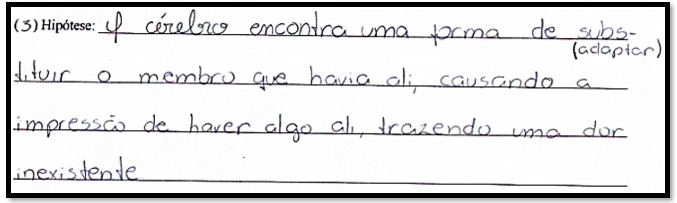 (3) Hipótese: O cérebro encontra uma forma de subs-
(adaptar)
tituir o membro que havia ali, causando a
impressão de haver algo ali, trazendo uma dor
inexistente